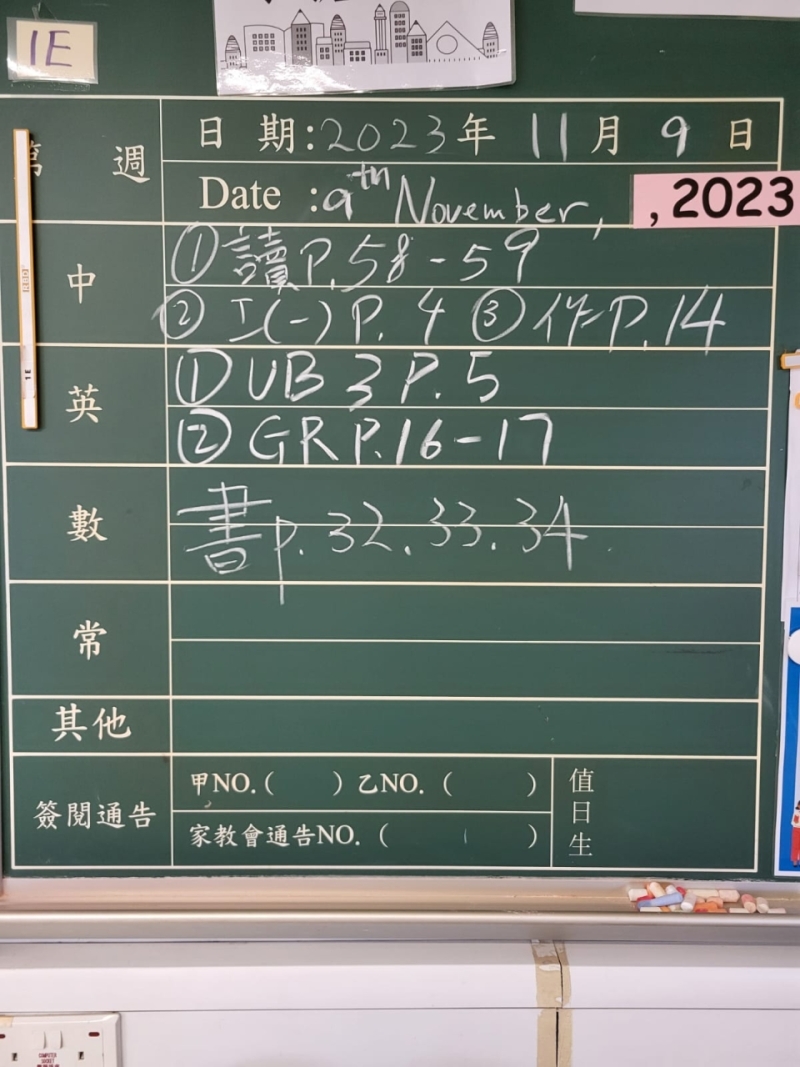 1E
第 週
日 期:2023年 11月 9 日
Date :9th November, , 2023
中
①讀P.58-59
②工(一)P.4 ③作P.14
英
①UB3 P.5
②GR P.16-17
數
書p.32.33.34
常
其他
簽閱通告
甲NO.( ) 乙NO. ( )
家教會通告NO. ( )
值日生
1E